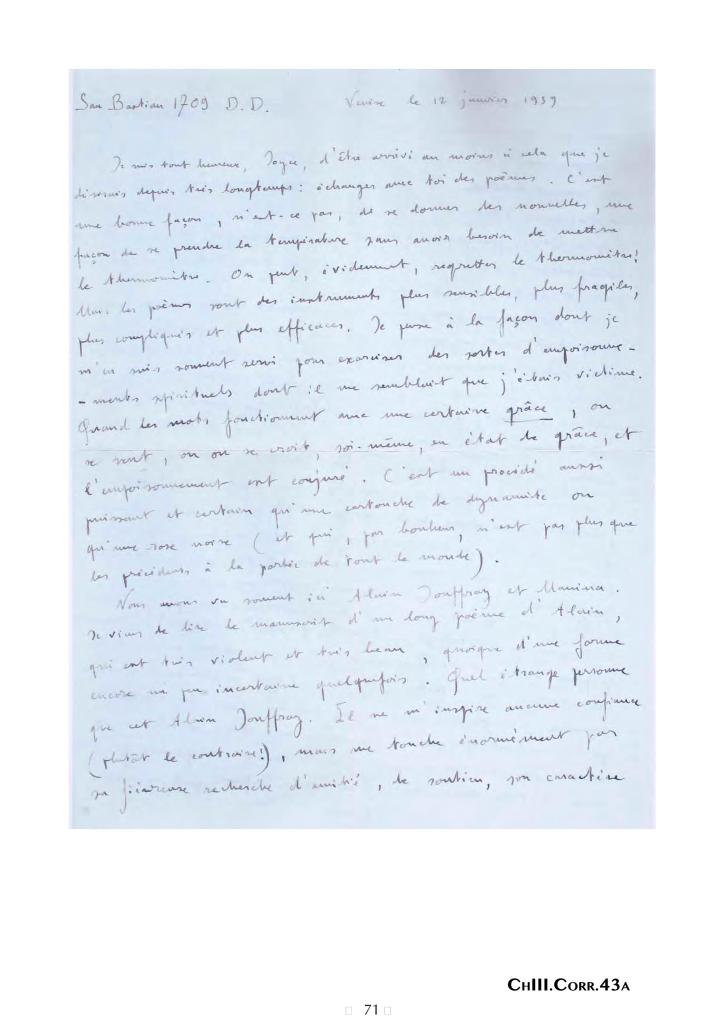 San Bastian 1709 D.D. Venise le 12 janvier 1959
Je suis tout heureux, Joyce, d'être arrivé au moins à cela que je
désirais depuis très longtemps : échanger avec toi des poèmes. C'est
une bonne façon, n'est-ce pas, de se donner des nouvelles, une
façon de se prendre la température sans avoir besoin de mettre
le thermomètre. On peut, évidemment, regretter le thermomètre!
Mais les poèmes sont des instruments plus sensibles, plus fragiles,
plus compliqués et plus efficaces. Je pense à la façon dont je
m'en suis souvent servi pour exorciser des sortes d'empoisonne-
-ments spirituels dont il me semblait que j'étais victime.
Quand les mots fonctionnent avec une certaine grâce, on
se sent, ou on se croit, soi-même, en état de grâce, et
l'empoisonnement est conjuré. C'est un procédé aussi
puissant et certain qu'une cartouche de dynamite ou
qu'une rose noire (et qui, par bonheur, n'est pas plus que
les précédents à la portée de tout le monde).
Nous avons vu souvent ici Alain Jouffroy et Manina.
Je viens de lire le manuscrit d'un long poème d'Alain,
qui est très violent et très beau, quoique d'une forme
encore un peu incertaine quelquefois. Quel étrange personne
que cet Alain Jouffroy. Il ne m'inspire aucune confiance
(plutôt le contraire!), mais me touche énormément par
sa fiévreuse recherche d'amitié, de soutien, son caractère
CHIII.CORR.43A
71